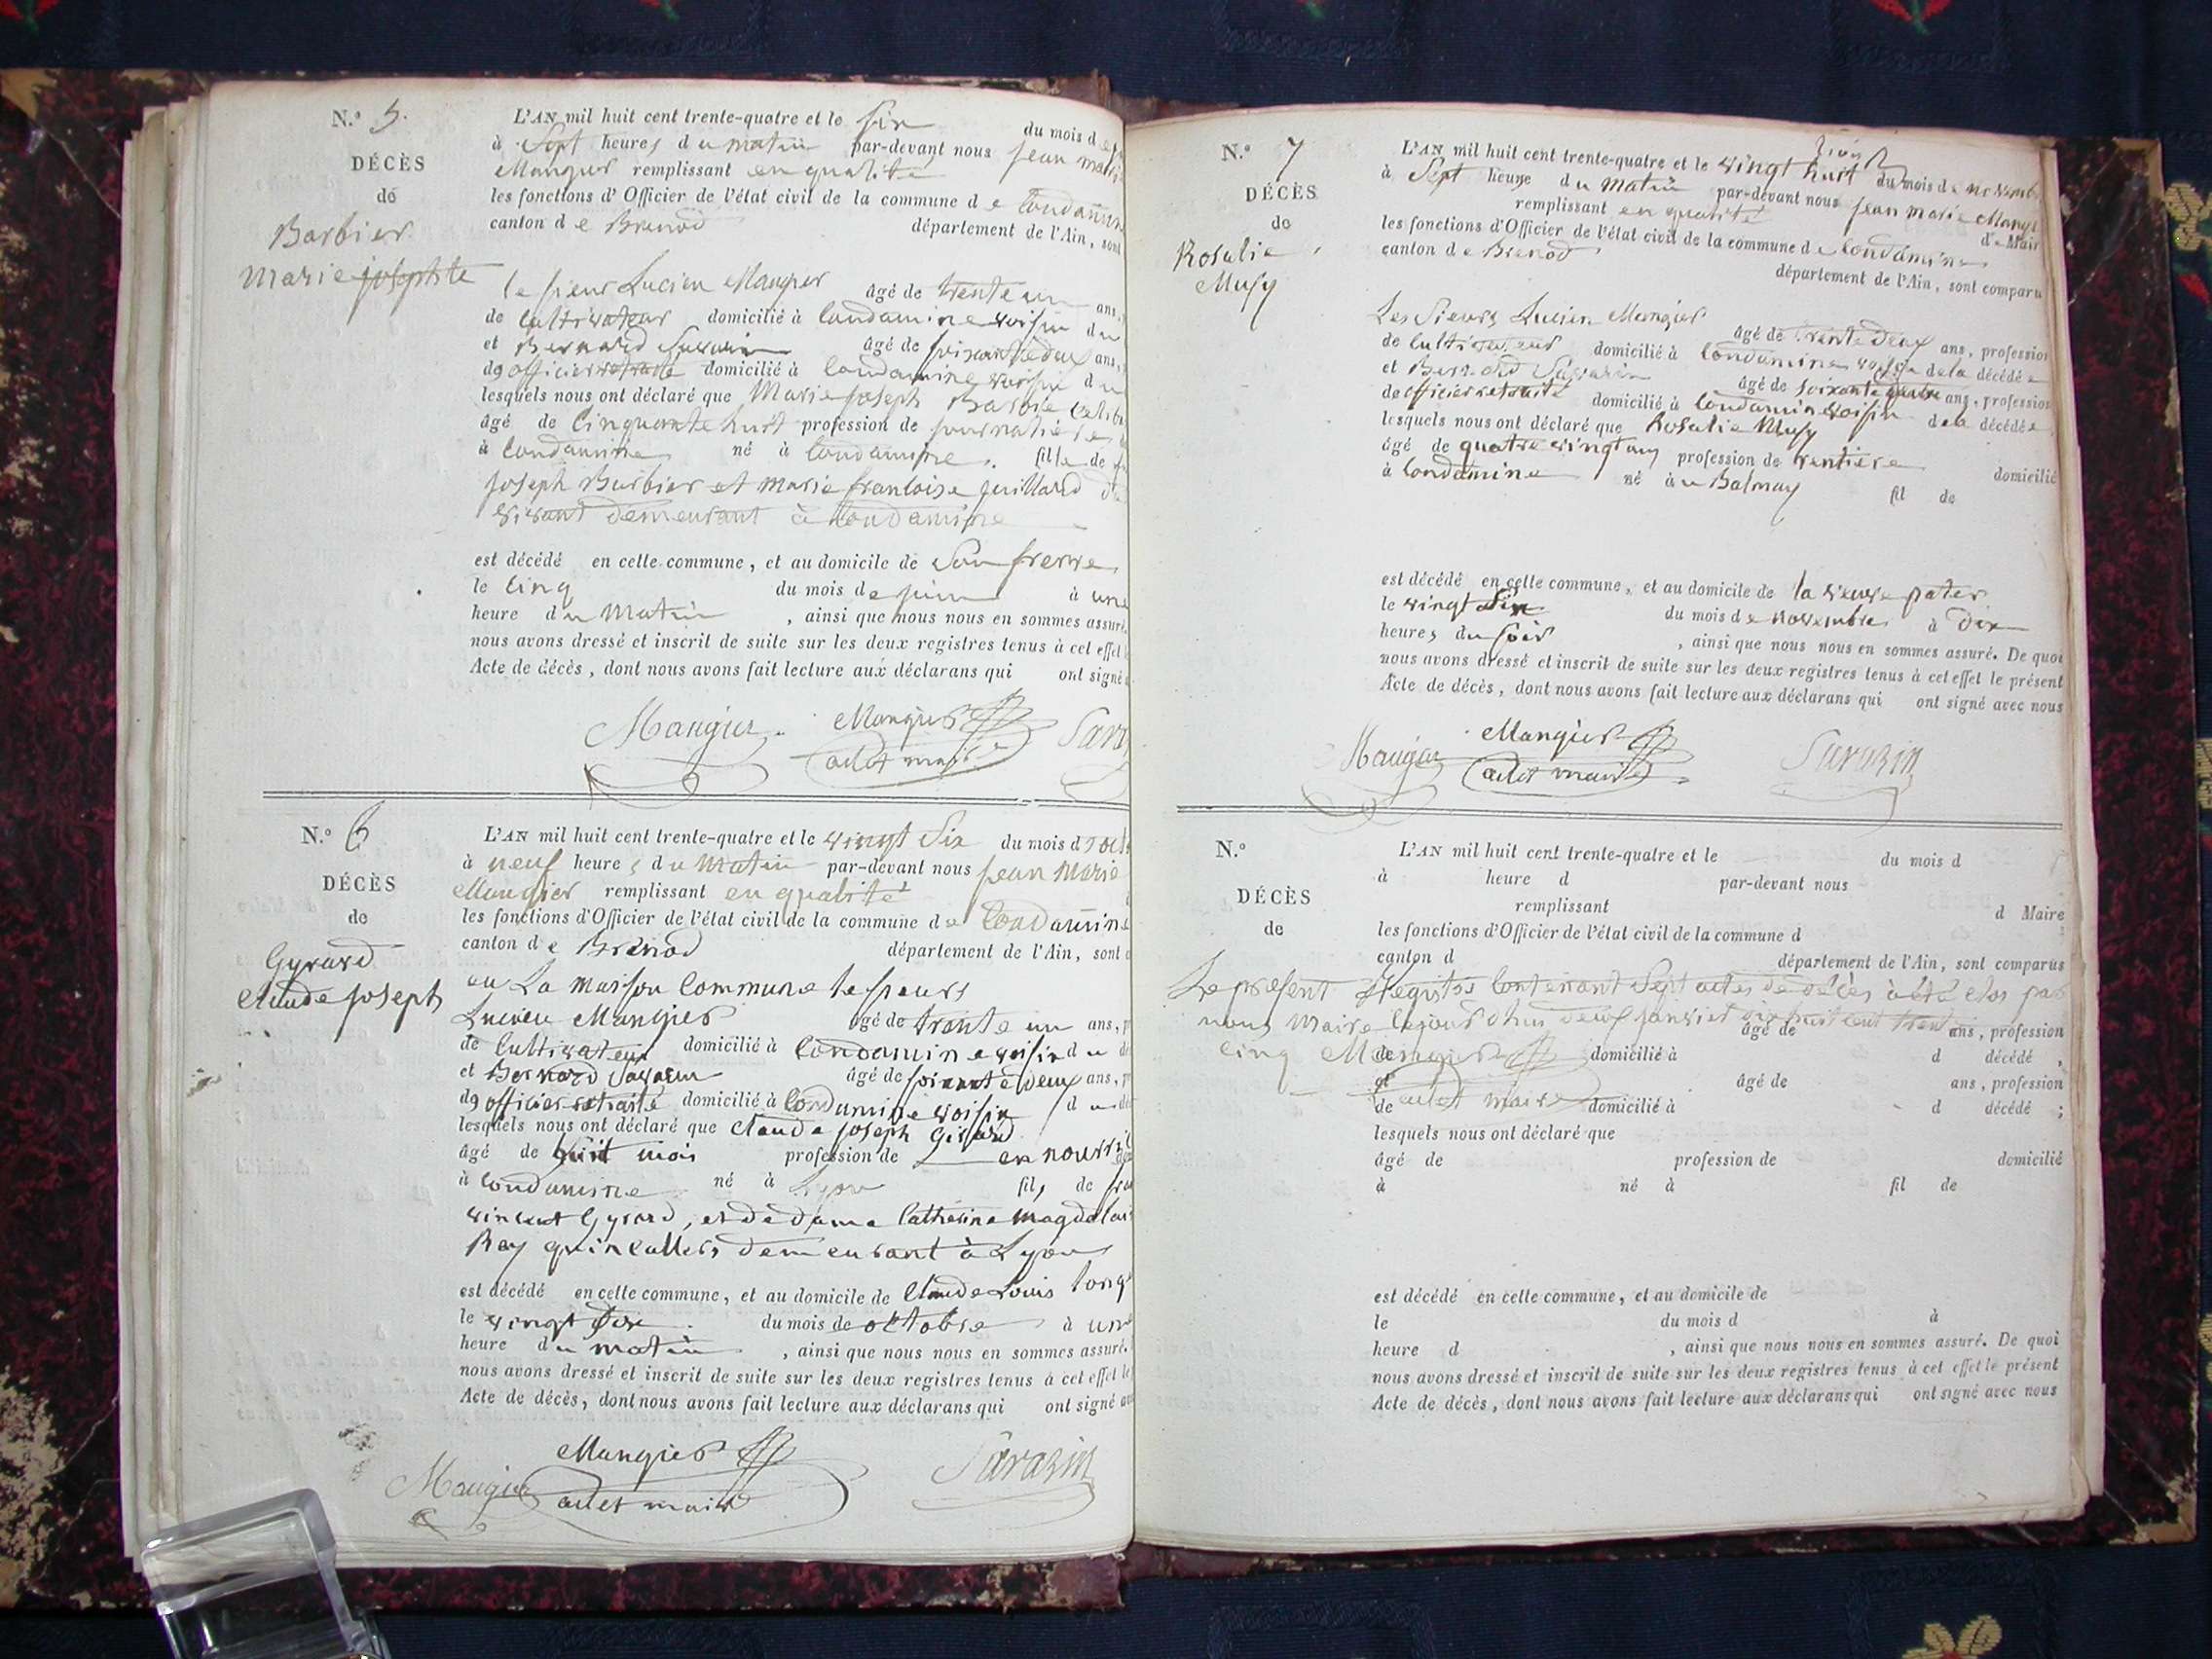 N.° 5.
DÉCÈS
de
Barbier
Marie josephte
L'AN mil huit cent trente-quatre et le six du mois d
à Sept heures du matin par-devant nous jean marie
Maugier remplissant en qualité
les fonctions d'Officier de l'état civil de la commune de Condamine
canton de Brenod département de l'Ain, sont
le sieur Lucien Maugier âgé de trente un ans,
de Cultivateur domicilié à Condamine voisin du
et Bernard Savarin âgé de soixante deux ans,
dg officier retraité domicilié à Condamine voisin du
lesquels nous ont déclaré que Marie joseph Barbie
âgé de Cinquante huit profession de journalière
à Condamine né à Condamine fille de
joseph Barbier et marie francoise juillard
vivant demeurant à Condamine
est décédé en celle commune, et au domicile de Son frerre
le Cinq du mois de juin à une
heure du Matin, ainsi que nous nous en sommes assuré.
nous avons dressé et inscrit de suite sur les deux registres tenus à cet effet
Acte de décès, dont nous avons fait lecture aux déclarans qui ont signé
Maugier Maugier
adet maire
N.° 6
DÉCÈS
de
Gyrard
Claude joseph
L'AN mil huit cent trente-quatre et le vingt Six du mois d
à neuf heures du Matin par-devant nous jean Marie
Maugier remplissant en qualité
les fonctions d'Officier de l'état civil de la commune de Condamine
canton de Brenod département de l'Ain, sont
en La maison Commune le sieurs
Lucien Maugier âgé de trente un ans,
de Cultivateur domicilié à Condamine voisin du
et Bernard Savarin âgé de soixante deux ans,
dg officier retraité domicilié à Condamine voisin du
lesquels nous ont déclaré que Claude joseph Girard
âgé de huit mois profession de en
à Condamine né à Lyon fils de
vincent Gyrard, et de dame Catherine
Rey demeurant à Lyon
est décédé en celle commune, et au domicile de Claude Louis
le vingt Six du mois de octobre à une
heure du matin, ainsi que nous nous en sommes assuré.
nous avons dressé et inscrit de suite sur les deux registres tenus à cet effet le
Acte de décès, dont nous avons fait lecture aux déclarans qui ont signé
Maugier Maugier Savarin
adet maire
N.° 7
DÉCÈS
de
Rosalie
Musy
L'AN mil huit cent trente-quatre et le vingt huit du mois de
à Sept heure du matin par-devant nous jean marie
remplissant en qualité de Mair
les fonctions d'Officier de l'état civil de la commune de Condamine
canton de Brenod département de l'Ain, sont comparu
Les Sieurs Lucien Maugier âgé de trente deux ans, profession
de Cultivateur domicilié à Condamine voisin de la décédée
et Bernard Savarin âgé de soixante ans, profession
de officier retraité domicilié à Condamine voisin de la décédée
lesquels nous ont déclaré que Rosalie Musy
âgé de quatre vingt profession de rentiere domicilié
à Condamine né à u Balmay fil de
est décédé en celle commune, et au domicile de la veuve pater
le vingt Six du mois de novembre à dix
heures du soir, ainsi que nous nous en sommes assuré. De quoi
nous avons dressé et inscrit de suite sur les deux registres tenus à cet effet le présent
Acte de décès, dont nous avons fait lecture aux déclarans qui ont signé avec nous
Maugier Maugier Savarin
adet maire
N.°
DÉCÈS
de
L'AN mil huit cent trente-quatre et le du mois d
à heure d par-devant nous
remplissant d Maire
les fonctions d'Officier de l'état civil de la commune d
canton d département de l'Ain, sont comparus
Le present Registre Contenant Sept actes de décès à été clos par
nous Maire
âgé de ans, profession
cinq Maugier
de domicilié à d décédé,
et âgé de ans, profession
adet maire
de domicilié à d décédé;
lesquels nous ont déclaré que
âgé de profession de domicilié
à né à fil de
est décédé en celle commune, et au domicile de
le du mois d à
heure d, ainsi que nous nous en sommes assuré. De quoi
nous avons dressé et inscrit de suite sur les deux registres tenus à cet effet le présent
Acte de décès, dont nous avons fait lecture aux déclarans qui ont signé avec nous